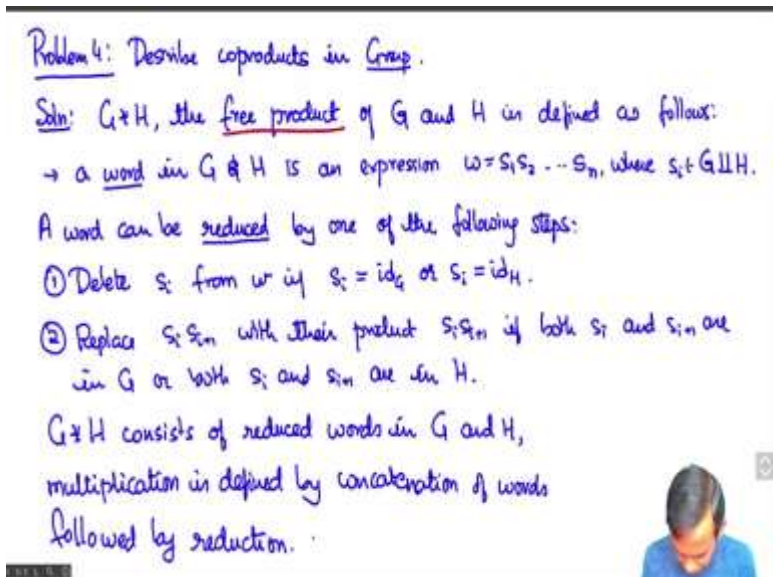 Problem 4: Describe coproducts in Group.
Soln: G*H, the free product of G and H is defined as follows:
→ a word in G & H is an expression w = s₁s₂ ... sₙ, where sᵢ ∈ G⨿H.
A word can be reduced by one of the following steps:
① Delete sᵢ from w if sᵢ = id_G or sᵢ = id_H.
② Replace sᵢ sᵢ₊₁ with their product sᵢsᵢ₊₁ if both sᵢ and sᵢ₊₁ are
in G or both sᵢ and sᵢ₊₁ are in H.
G*H consists of reduced words in G and H,
multiplication is defined by concatenation of words
followed by reduction.